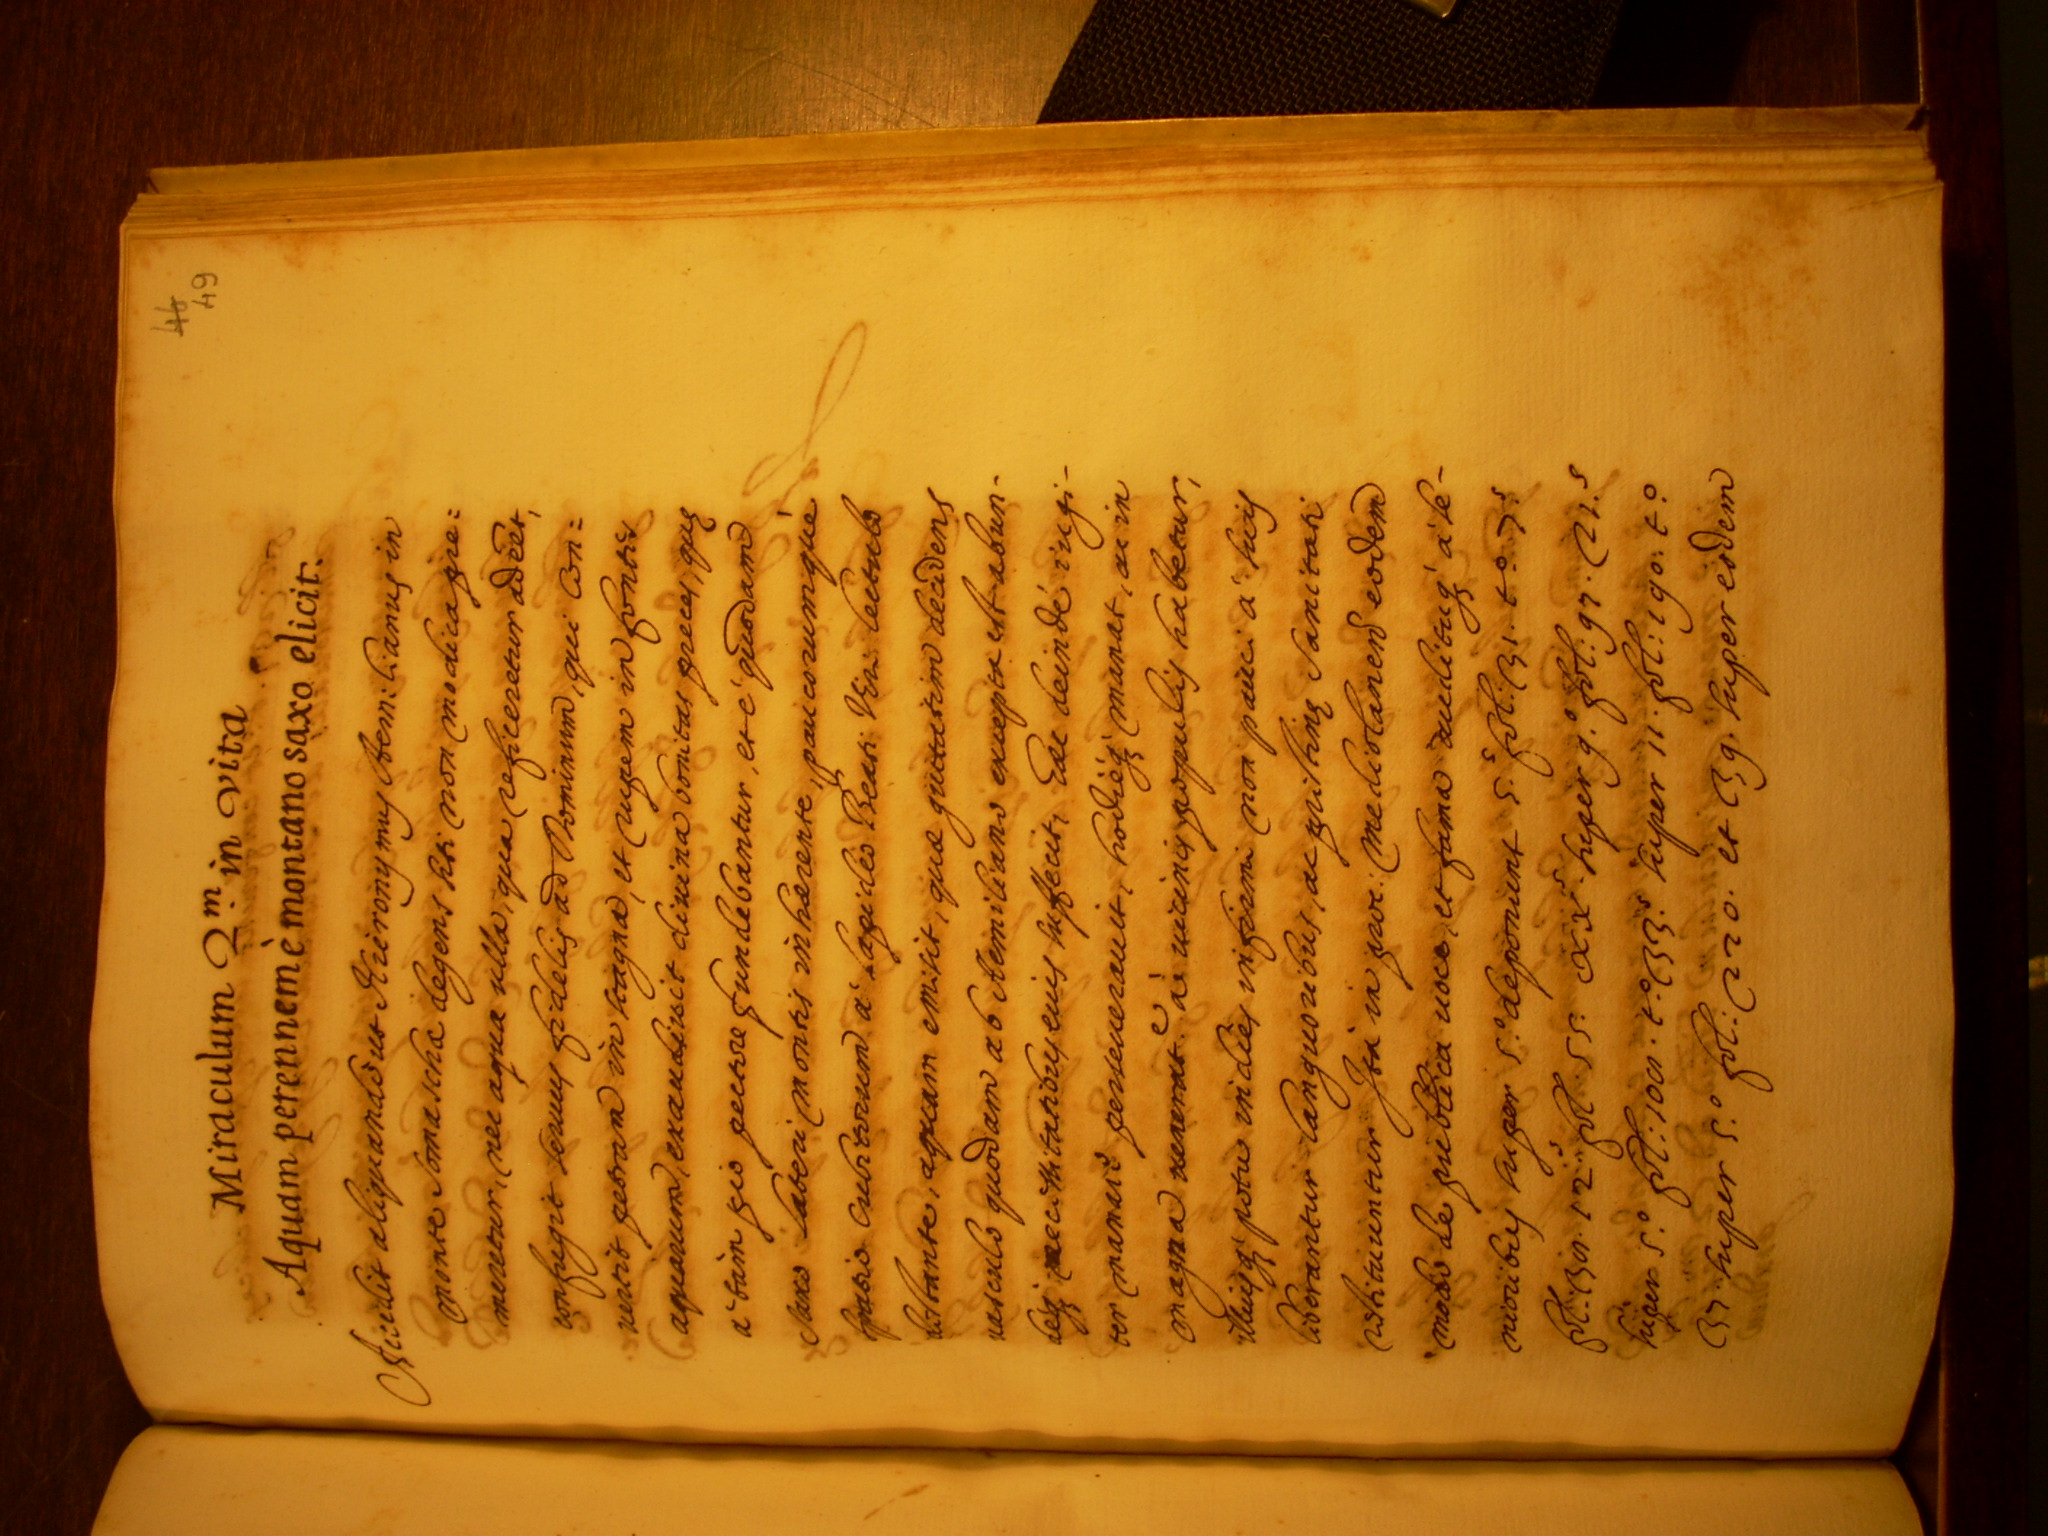 49
Miraculum 2.m in vita
Aquam perennem è montano saxo elicit.
Accidit aliquando ut Hieronymus Aemilianus in
monte Somaschae degens siti non modica pre=
meretur, nec aqua ulla, qua reficeretur adeêt,
confugit servus fidelis ad Dominum, qui con=
vertit petram in stagna, et rupem in fontes
aquarum, exaudivit divina bonitas preces, quae
à tàm pio pectore fundebantur, et è quodam
saxo lateri montis inhaerente, paucorumque
spatio cubitorum à lapideo Beati Viri lectulo
distante, aquam emisit, quae guttatim decidens
vasculo quodam ab Aemiliano excepta est abun-
deq; necessitatibus eius suffecit, Eae deindè iugi-
ter manare perseveravit, hodieq; manat, ac in
magna venerat.e à vicinis populis habetur,
illiusq; potu in dies infirmi non pauci à suis
liberantur languoribus, ac pristinae sanitati
restituuntur. Ita in proc: Mediolanen eodem
modo de publica voce, et fama auditus à se-
nioribus super 5.o deponunt 5.s fol: 31. t.o 7.s
fol: 30. 12.s fol: 55. XX.s super 9.o fol: 97. 21.s
super 5.o fol: 100. t.o 33.s super 11. fol: 190. t.o
37. super 5.o fol: 220. et 39. super eodem